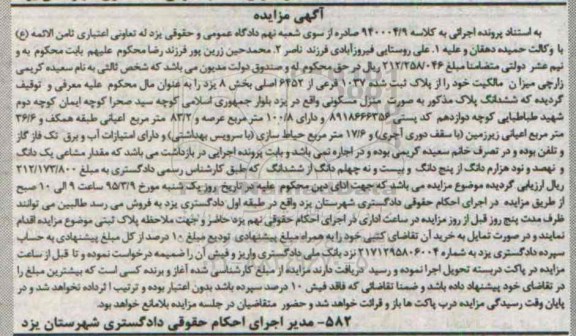 آگهی مزایده
به استناد پرونده اجرائی به کلاسه ۹۴۰۰۰۴/۹ صادره از سوی شعبه نهم دادگاه عمومی و حقوقی یزد له تعاونی اعتباری ثامن الائمه (ع)
با وکالت حمیده دهقان و علیه ۱. علی روستایی فیروزآبادی فرزند ناصر ۲. محمدحسن زرین پور فرزند رضا محکوم علیهم بابت محکوم به و
نیم عشر دولتی متضامنا مبلغ ۲۱۲/۲۵۸/۰۴۶ ریال در حق محکوم له و صندوق دولت مدیون می باشد که شخص ثالثی به نام سعیده کریمی
زارچی میزان مالکیت خود را از پلاک ثبتی ۱۰۳۷ فرعی از ۶۴۵۲ اصلی بخش ۸ یزد را به عنوان مال محکوم علیه معرفی و توقیف
گردیده که ششدانگ پلاک مذکور به صورت منزل مسکونی واقع در یزد بلوار جمهوری اسلامی کوچه سید صحرا کوچه ایمان کوچه دوم
شهید طباطبایی کوچه دوازدهم کد پستی ۸۹۱۸۶۶۶۳۵۶ و دارای ۱۰۰/۸ متر مربع عرصه و ۸۳/۲ متر مربع اعیانی طبقه همکف و ۳۶/۶
متر مربع اعیانی زیرزمین (با سقف دوری آجری) و ۱۷/۶ متر مربع حیاط سازی (با سرویس بهداشتی) و دارای امتیازات آب و برق تک فاز گاز
و تلفن بوده و در تصرف خانم سعیده کریمی بوده و در اجاره نمی باشد و بابت پرونده اجرایی در بازداشت می باشد که مقدار مشاعی یک دانگ
و نهصد و نود هزارم دانگ از پنج دانگ و بیست و نه چهلم دانگ از ششدانگ که طبق کارشناس رسمی دادگستری به مبلغ ۲۱۲/۱۷۳/۸۰۰
ریال ارزیابی گردیده موضوع مزایده می باشد که جهت ادای دین محکوم علیه در تاریخ روز یک شنبه مورخ ۹۵/۳/۹ ساعت ۹ الی ۱۰ صبح
از طریق مزایده در اجرای احکام حقوقی دادگستری شهرستان یزد واقع در طبقه اول دادگستری یزد به فروش می رسد طالبین می توانند
ظرف مدت پنج روز قبل از روز مزایده در ساعت اداری در اجرای احکام حقوقی نهم یزد حاضر و جهت ملاحظه پلاک ثبتی موضوع مزایده اقدام
نمایند و در صورت تمایل به خرید آن تقاضای کتبی خود را به همراه مبلغ پیشنهادی تودیع مبلغ ۱۰ درصد از کل مبلغ پیشنهادی به حساب
سپرده دادگستری یزد به شماره ۲۱۷۱۲۹۵۸۰۶۰۰۴ نزد بانک ملی دادگستری واریز و فیش آن را ضمیمه درخواست نموده و تا قبل از ساعت
مزایده در پاکت دربسته تحویل اجرا نموده و رسید دریافت دارند مزایده از مبلغ کارشناسی شده آغاز و برنده کسی است که بیشترین مبلغ را
در تقاضای خود پیشنهاد داده باشد و ضمنا تقاضائی که فاقد فیش ۱۰ درصد سپرده باشد بدون اعتبار بوده و ترتیب اثر داده نخواهد شد و در
پایان وقت رسیدگی مزایده درب پاکت ها باز و قرائت خواهد شد و حضور متقاضیان در جلسه مزایده بلامانع خواهد بود.
۵۸۲- مدیر اجرای احکام حقوقی دادگستری شهرستان یزد